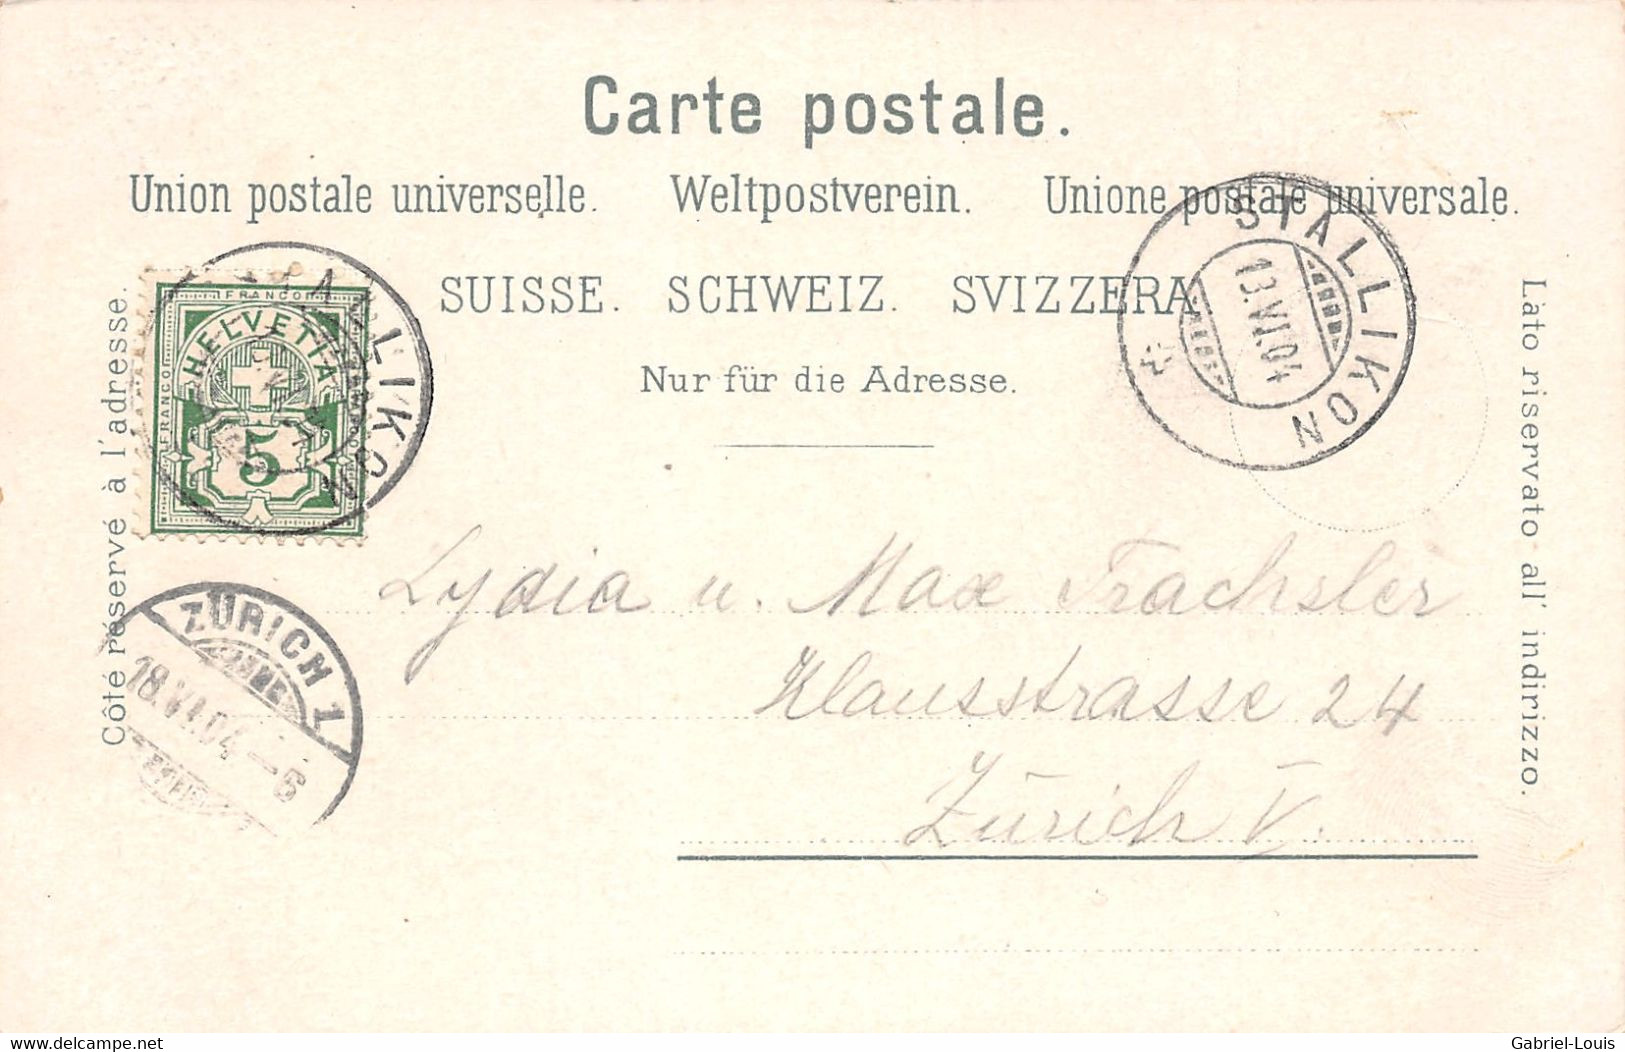 Carte postale.
Union postale universelle. Weltpostverein. Unione postale universale.
SUISSE. SCHWEIZ. SVIZZERA
Nur für die Adresse.
Côté réservé à l'adresse.
Làto riservato all' indirizzo.
FRANCO
FRANCO
HELVETIA
5
STALLIKON
STALLIKON
13.VI.04
ZÜRICH 1
18.VI.04-6
Lydia u. Max Trachsler
Klausstrasse 24
Zürich V.
www.delcampe.net
Gabriel-Louis